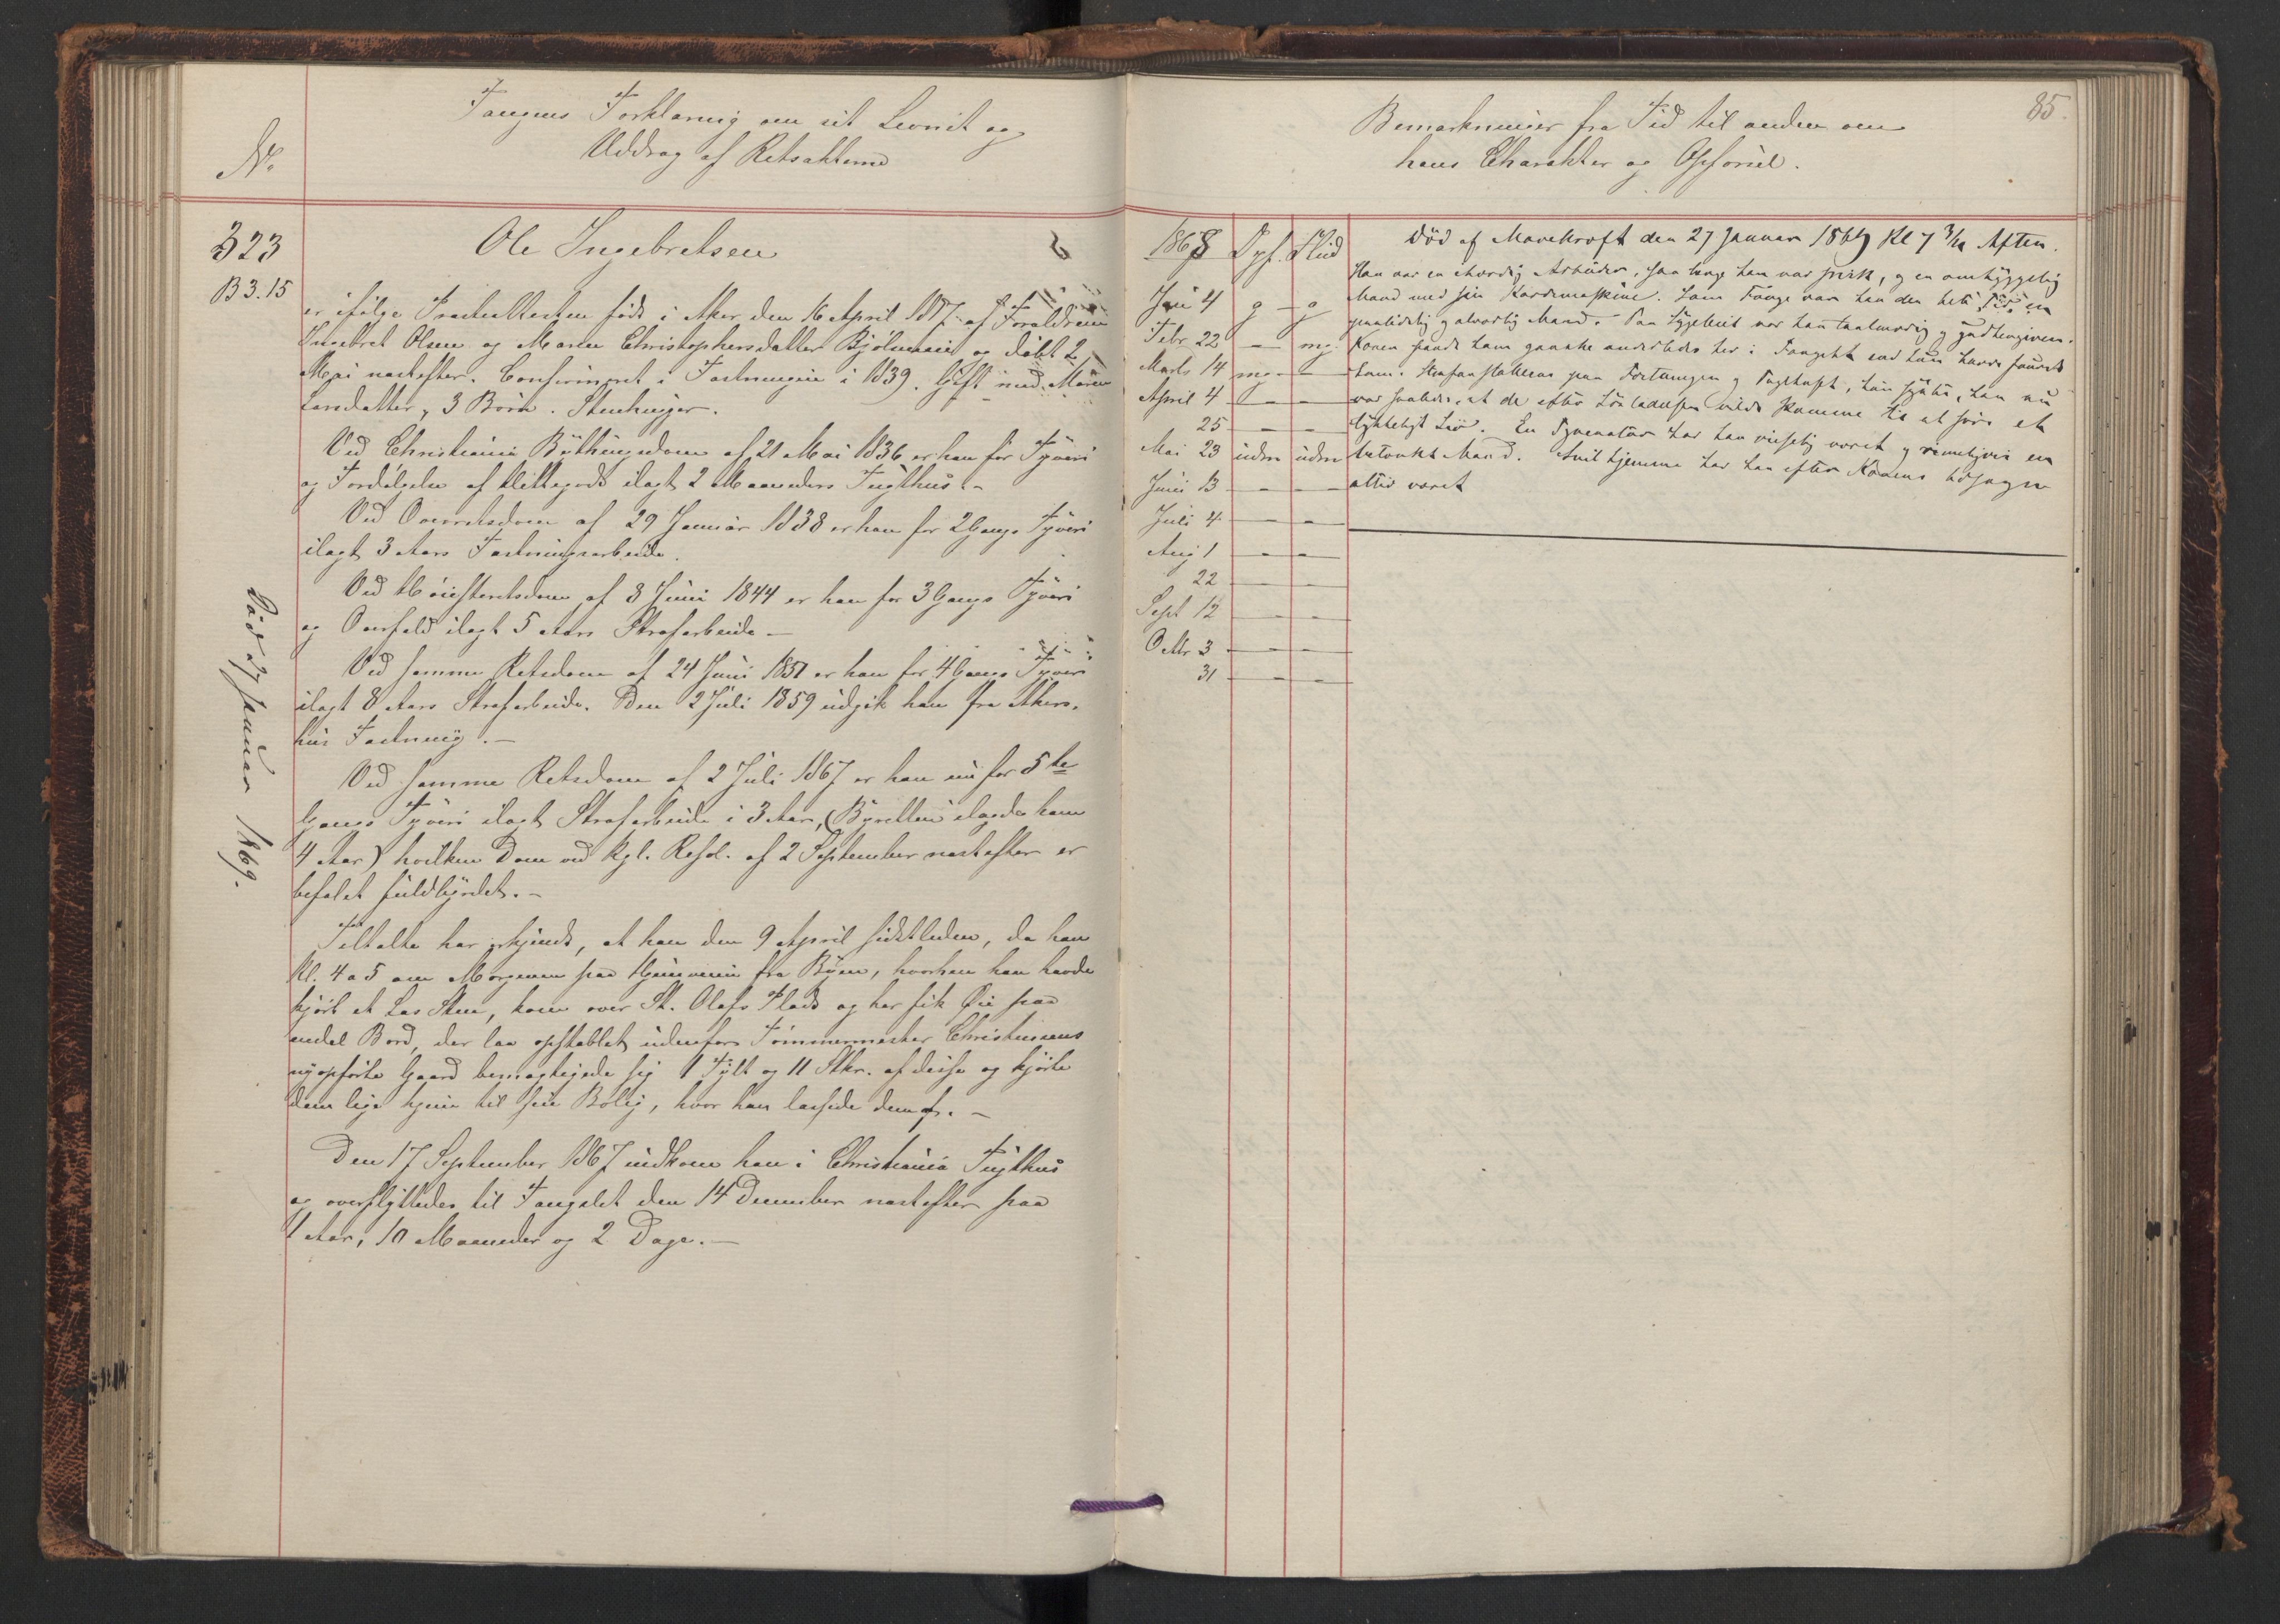 No.
Fangens Forklaring om sit Levnet og
Uddrag af Retsakterne
323
B 3.15
Ole Ingebretsen
er ifølge Præsteattesten født i Aker den 16 April 1817 af Forældrene
Ingebret Olsen og Maren Christophersdatter Bjølmann og døbt 2
Mai næstefter. Confirmeret i Fæstningen i 1839. Gift med Maren
Larsdatter, 3 Børn. Stenhugger.
Ved Christiania Bythingsdom af 21 Mai 1836 er han for Tyveri
og Fordølgelse af Hittegods ilagt 2 Maaneders Tugthus.-
Ved Overretsdom af 29 Januar 1838 er han for 2 Gangs Tyveri
ilagt 3 Aars Fæstningsarbeide.
Ved Høiesteretsdom af 8 Juni 1844 er han for 3 Gangs Tyveri
og Overfald ilagt 5 Aars Strafarbeide.-
Ved samme Retsdom af 24 Juni 1851 er han for 4 Gangs Tyveri
ilagt 8 Aars Strafarbeide. Den 2 Juli 1859 udgik han fra Akers-
hus Fæstning.-
Ved samme Retsdom af 2 Juli 1867 er han nu for 5te
Gangs Tyveri ilagt Strafarbeide i 3 Aar, (Byretten ilagde ham
4 Aar) hvilken Dom ved kgl. Resol. af 2 September næstefter er
befalet fuldbyrdet.-
Tiltalte har erkjendt, at han den 9 April sidstleden, da han
Kl. 4 a 5 om Morgenen paa Hjemveien fra Byen, hvorhen han havde
kjørt et Læs Sten, kom over St. Olafs Plads og her fik Øie paa
endel Bord, der laa opstablet udenfor Tømmermester Christensens
nyopførte Gaard bemægtigede sig 1 Tylt og 11 Stkr. af disse og kjørte
dem lige hjem til sin Bolig, hvor han læssede dem af.-
Den 17 September 1867 indkom han i Christiania Tugthus
og overflyttedes til Fængslet den 14 December næstefter paa
1 Aar, 10 Maaneder og 2 Dage.-
Død 27 Januar 1869.
85.
Bemærkninger fra Tid til anden om
hans Charakter og Opførsel.
1868 Opf. Flid
Jan 4 g - g
Febr 22 - mg.
Marts 14 mg - -
April 4 - -
25 - -
Mai 23 udm udm
Juni 13 - -
Juli 4 - -
Aug 1 - -
22 - -
Sept 12 - -
Octbr 3 - -
31 - -
Død af Mavekræft den 27 Januar 1869 Kl 7 3/4 Aften.
Han var en ihærdig Arbeider, saa længe han var frisk, og en omhyggelig
Mand med sin Kardemaskine. Som Fange var han den hele Tid en
paalidelig og alvorlig Mand. Paa Sygeleiet var han taalmodig og gudhengiven.
Konen fandt ham ganske anderledes her i Fængslet end hun havde fundet
ham i Strafanstalterne paa Fæstningen og Tugthuset, hun sagde, han nu
var saaledes, at de efter Løsladelsen vilde komme til at føre et
lykkeligt Liv. En Tyvenatur har han vistnok været og rimeligvis en
betænkt Mand. Snil hjemme har han efter Konens Udsagn
altid været